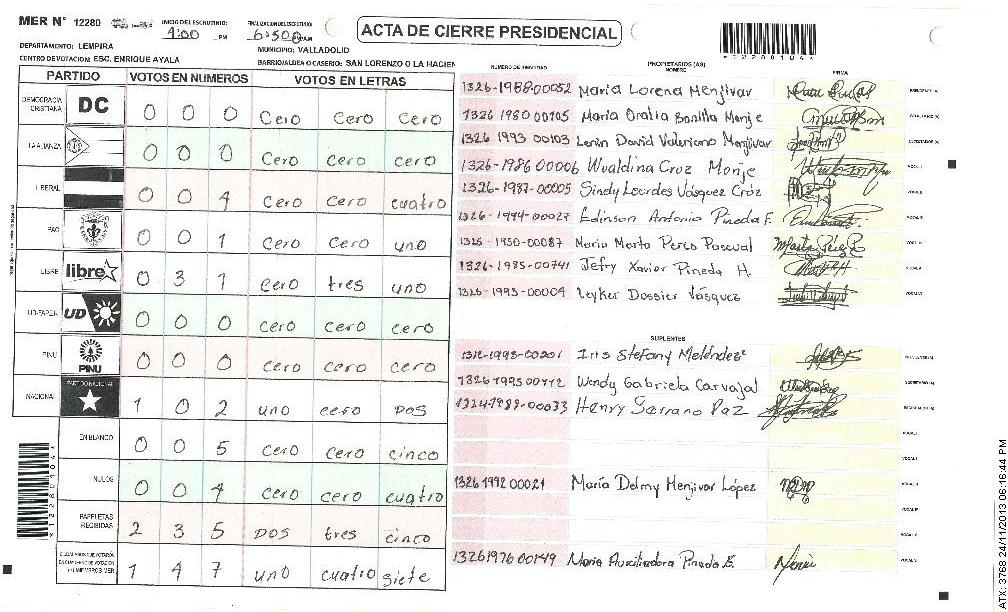 MER N° 12280 INICIO DEL ESCRUTINIO: 4:00 PM FINALIZACION DEL ESCRUTINIO: ACTA DE CIERRE PRESIDENCIAL
DEPARTAMENTO: LEMPIRA MUNICIPIO: VALLADOLID
CENTRO DE VOTACION: ESC. ENRIQUE AYALA BARRIO/ALDEA O CASERIO: SAN LORENZO O LA HACIEN
PARTIDO VOTOS EN NUMEROS VOTOS EN LETRAS
DEMOCRACIA CRISTIANA DC 0 0 0 Cero Cero Cero
LA ALIANZA 0 0 0 Cero cero cero
LIBERAL 0 0 4 cero cero cuatro
PAC 0 0 1 Cero Cero uno
LIBRE libre 0 3 1 Cero tres uno
UD-FAPER UD 0 0 0 cero cero cero
PINU PINU 0 0 0 cero cero cero
NACIONAL PARTIDO NACIONAL 1 0 2 uno cero DOS
EN BLANCO 0 0 5 Cero cero cinco
NULOS 0 0 4 cero cero cuatro
PAPELETAS RECIBIDAS 2 3 5 DOS tres cinco
1 4 7 uno cuatro siete
NUMERO DE IDENTIDAD PROPIETARIOS (AS) NOMBRE FIRMA
1326-1988-00052 María Lorena Menjivar
1326 1980 00105 María Oralia Bonilla Monje
1326 1993 00103 Lenin David Valeriano Menjivar
1326-1986 00006 Wualdina Cruz Monje
1326-1987-00005 Sindy Lourdes Vásquez Cróz
1326-1994-00027 Edinson Antonio Pineda F.
1326-1950-00087 Maria Marta Perez Pascual
1326-1985-00741 Jefry Xavier Pineda H.
1326-1993-00009 Leyker Dossier Vásquez
SUPLENTES
1312-1993-00201 Iris Stefany Meléndez
Wendy Gabriela Carvajal
1324-1989-00033 Henry Serrano Paz
1326 1992 00021 María Delmy Menjivar López
1326 1976 00149 Maria Auxiliadora Pineda B.
*12280104*
*12280104*
ATX: 3768 24/11/2013 06:16:44 PM